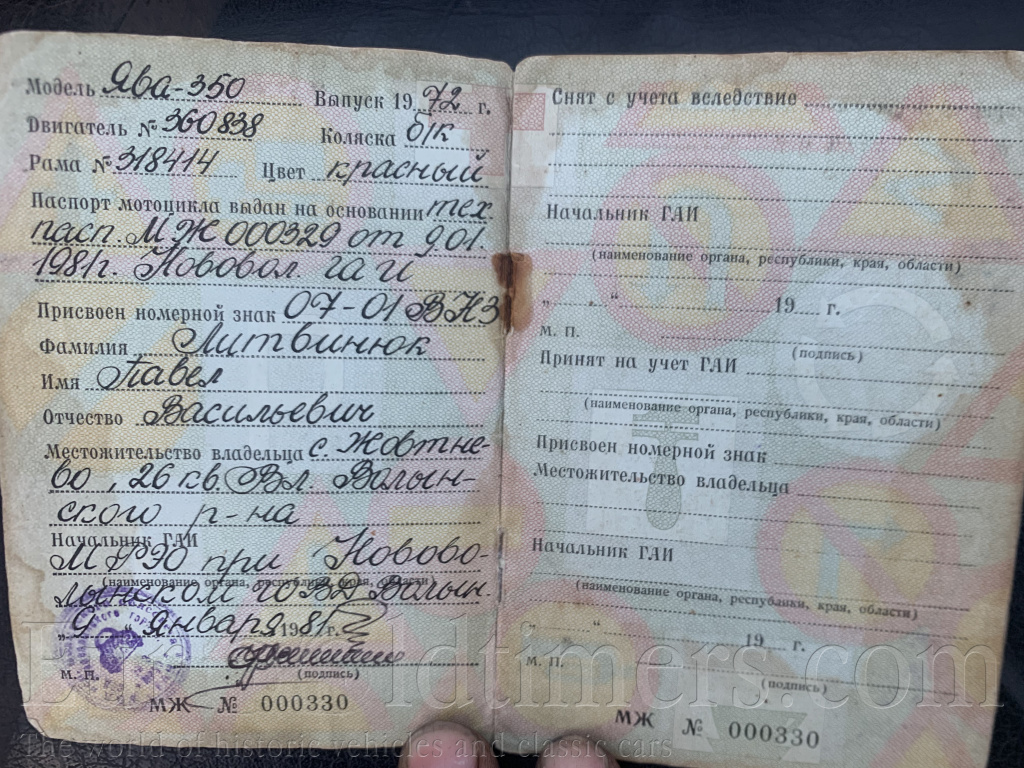 Модель Ява-350 Выпуск 1972 г.
Двигатель № 360838 Коляска б/к
Рама № 318414 Цвет красный
Паспорт мотоцикла выдан на основании тех.
пасп. МЖ 000329 от 9.01.
1981г. Нововол. гаи
Присвоен номерной знак 07-01 ВНЗ
Фамилия Литвинюк
Имя Павел
Отчество Васильевич
Местожительство владельца с. Жовтне-
во, 26 кв. Вл. Волын-
ского р-на
Начальник ГАИ
МРЭО при Новово-
(наименование органа, республики, края, области)
лынском ГОВД Волын.
„9“ января 1981 г.
(подпись)
М. П.
МЖ № 000330
Снят с учета вследствие
Начальник ГАИ
(наименование органа, республики, края, области)
„ . “ 19 г.
М. П.
(подпись)
Принят на учет ГАИ
(наименование органа, республики, края, области)
Присвоен номерной знак
Местожительство владельца
Начальник ГАИ
(наименование органа, республики, края, области)
„ “ 19 г.
М. П.
(подпись)
МЖ № 000330
ldtimers.com
The world of historic vehicles and classic cars